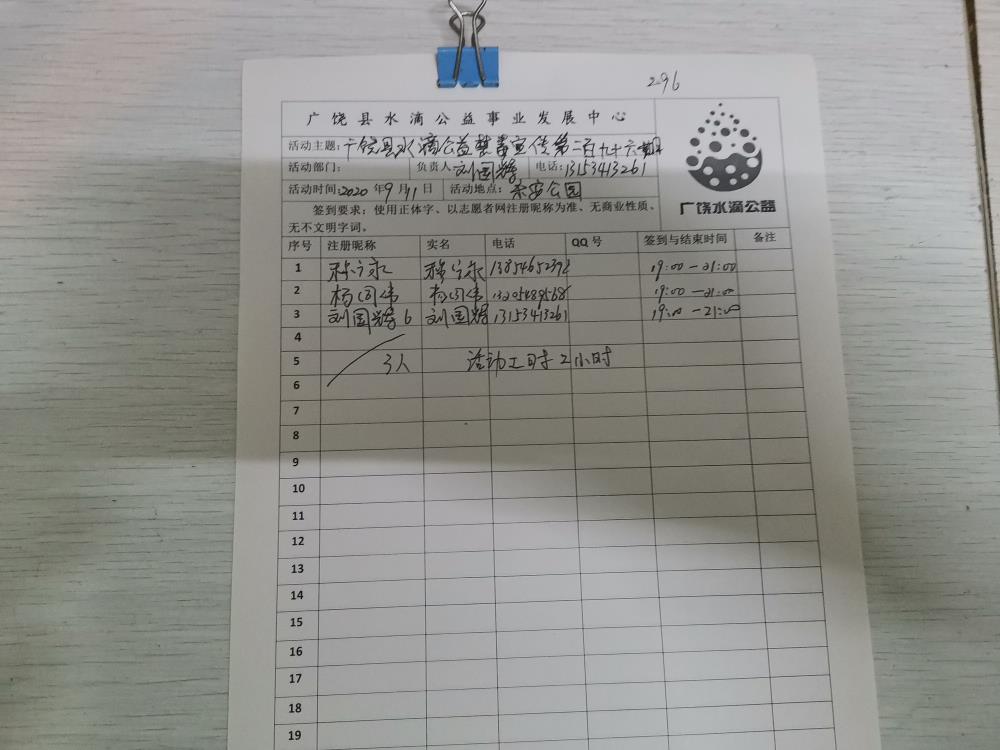 296
广饶县水滴公益事业发展中心
活动主题:广饶县水滴公益禁毒宣传第二百九十六期
活动部门: 负责人:刘国辉 电话:13153413261
活动时间:2020年9月11日 活动地点:乐安公园
签到要求:使用正体字、以志愿者网注册昵称为准、无商业性质、
无不文明字词。
广饶水滴公益
序号 注册昵称 实名 电话 QQ号 签到与结束时间 备注
1 19:00—21:00
2 杨 伟 杨 伟 19:00—21:00
3 刘国辉6 刘国辉 13153413261 19:00—21:00
4
5 3人 活动工时2小时
6
7
8
9
10
11
12
13
14
15
16
17
18
19